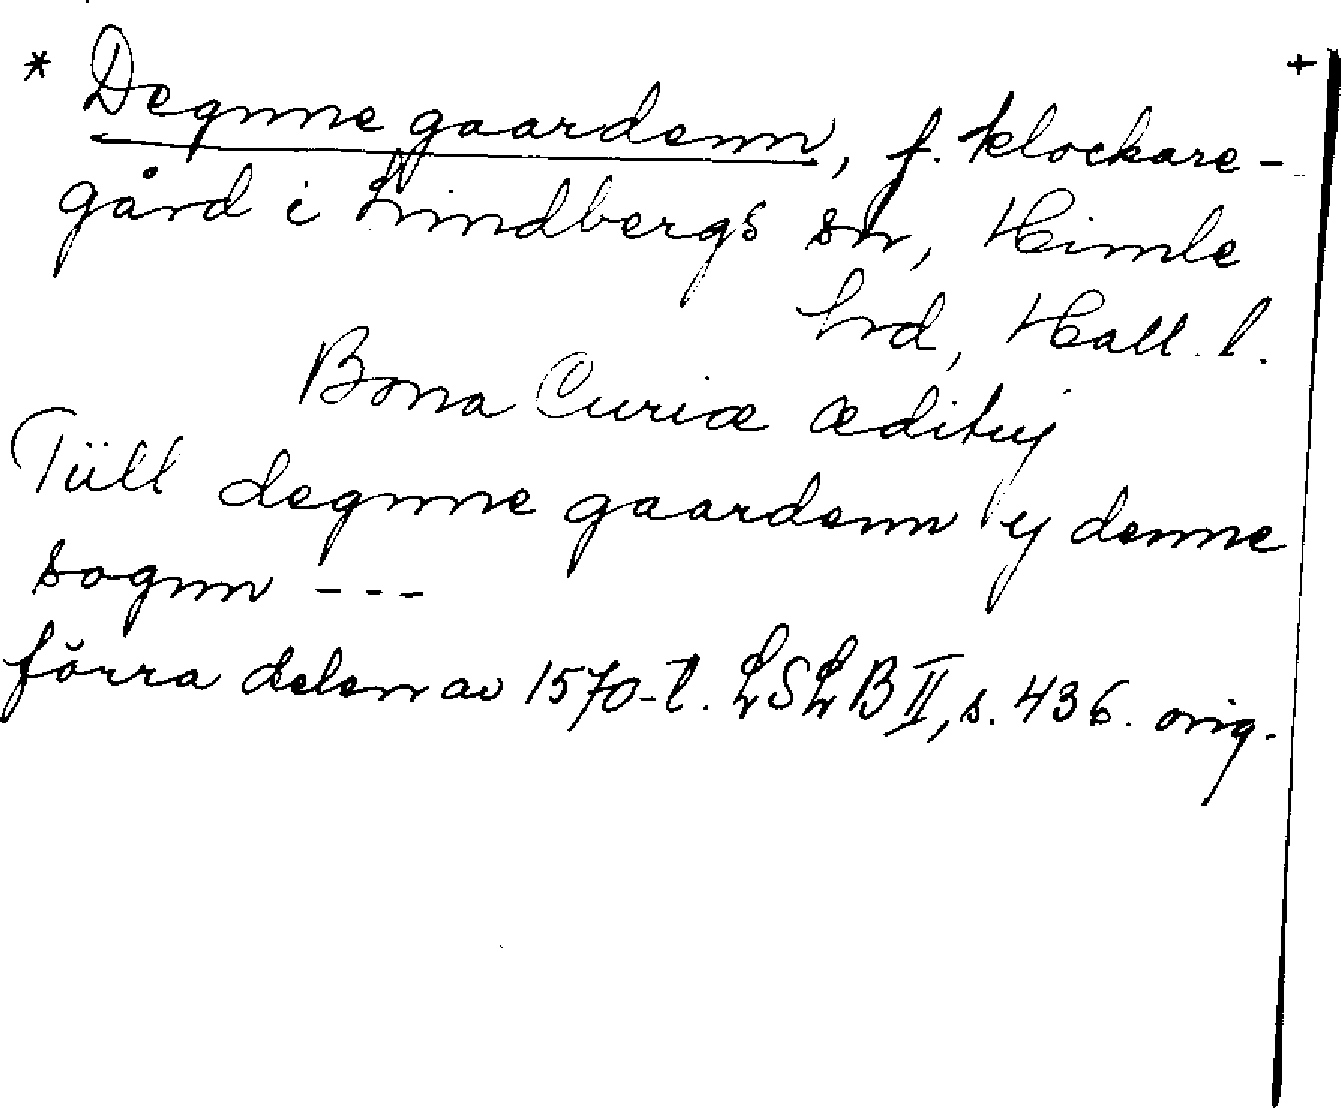 * Degnne gaardenn, f. klockare- +
gård i Lindbergs sn, Himle
hrd, Hall. l.
Bona Curiæ ædituj
Tüll degnne gaardenn y denne
sognn ---
förra delen av 1570-t. LSLB II, s. 436. orig.